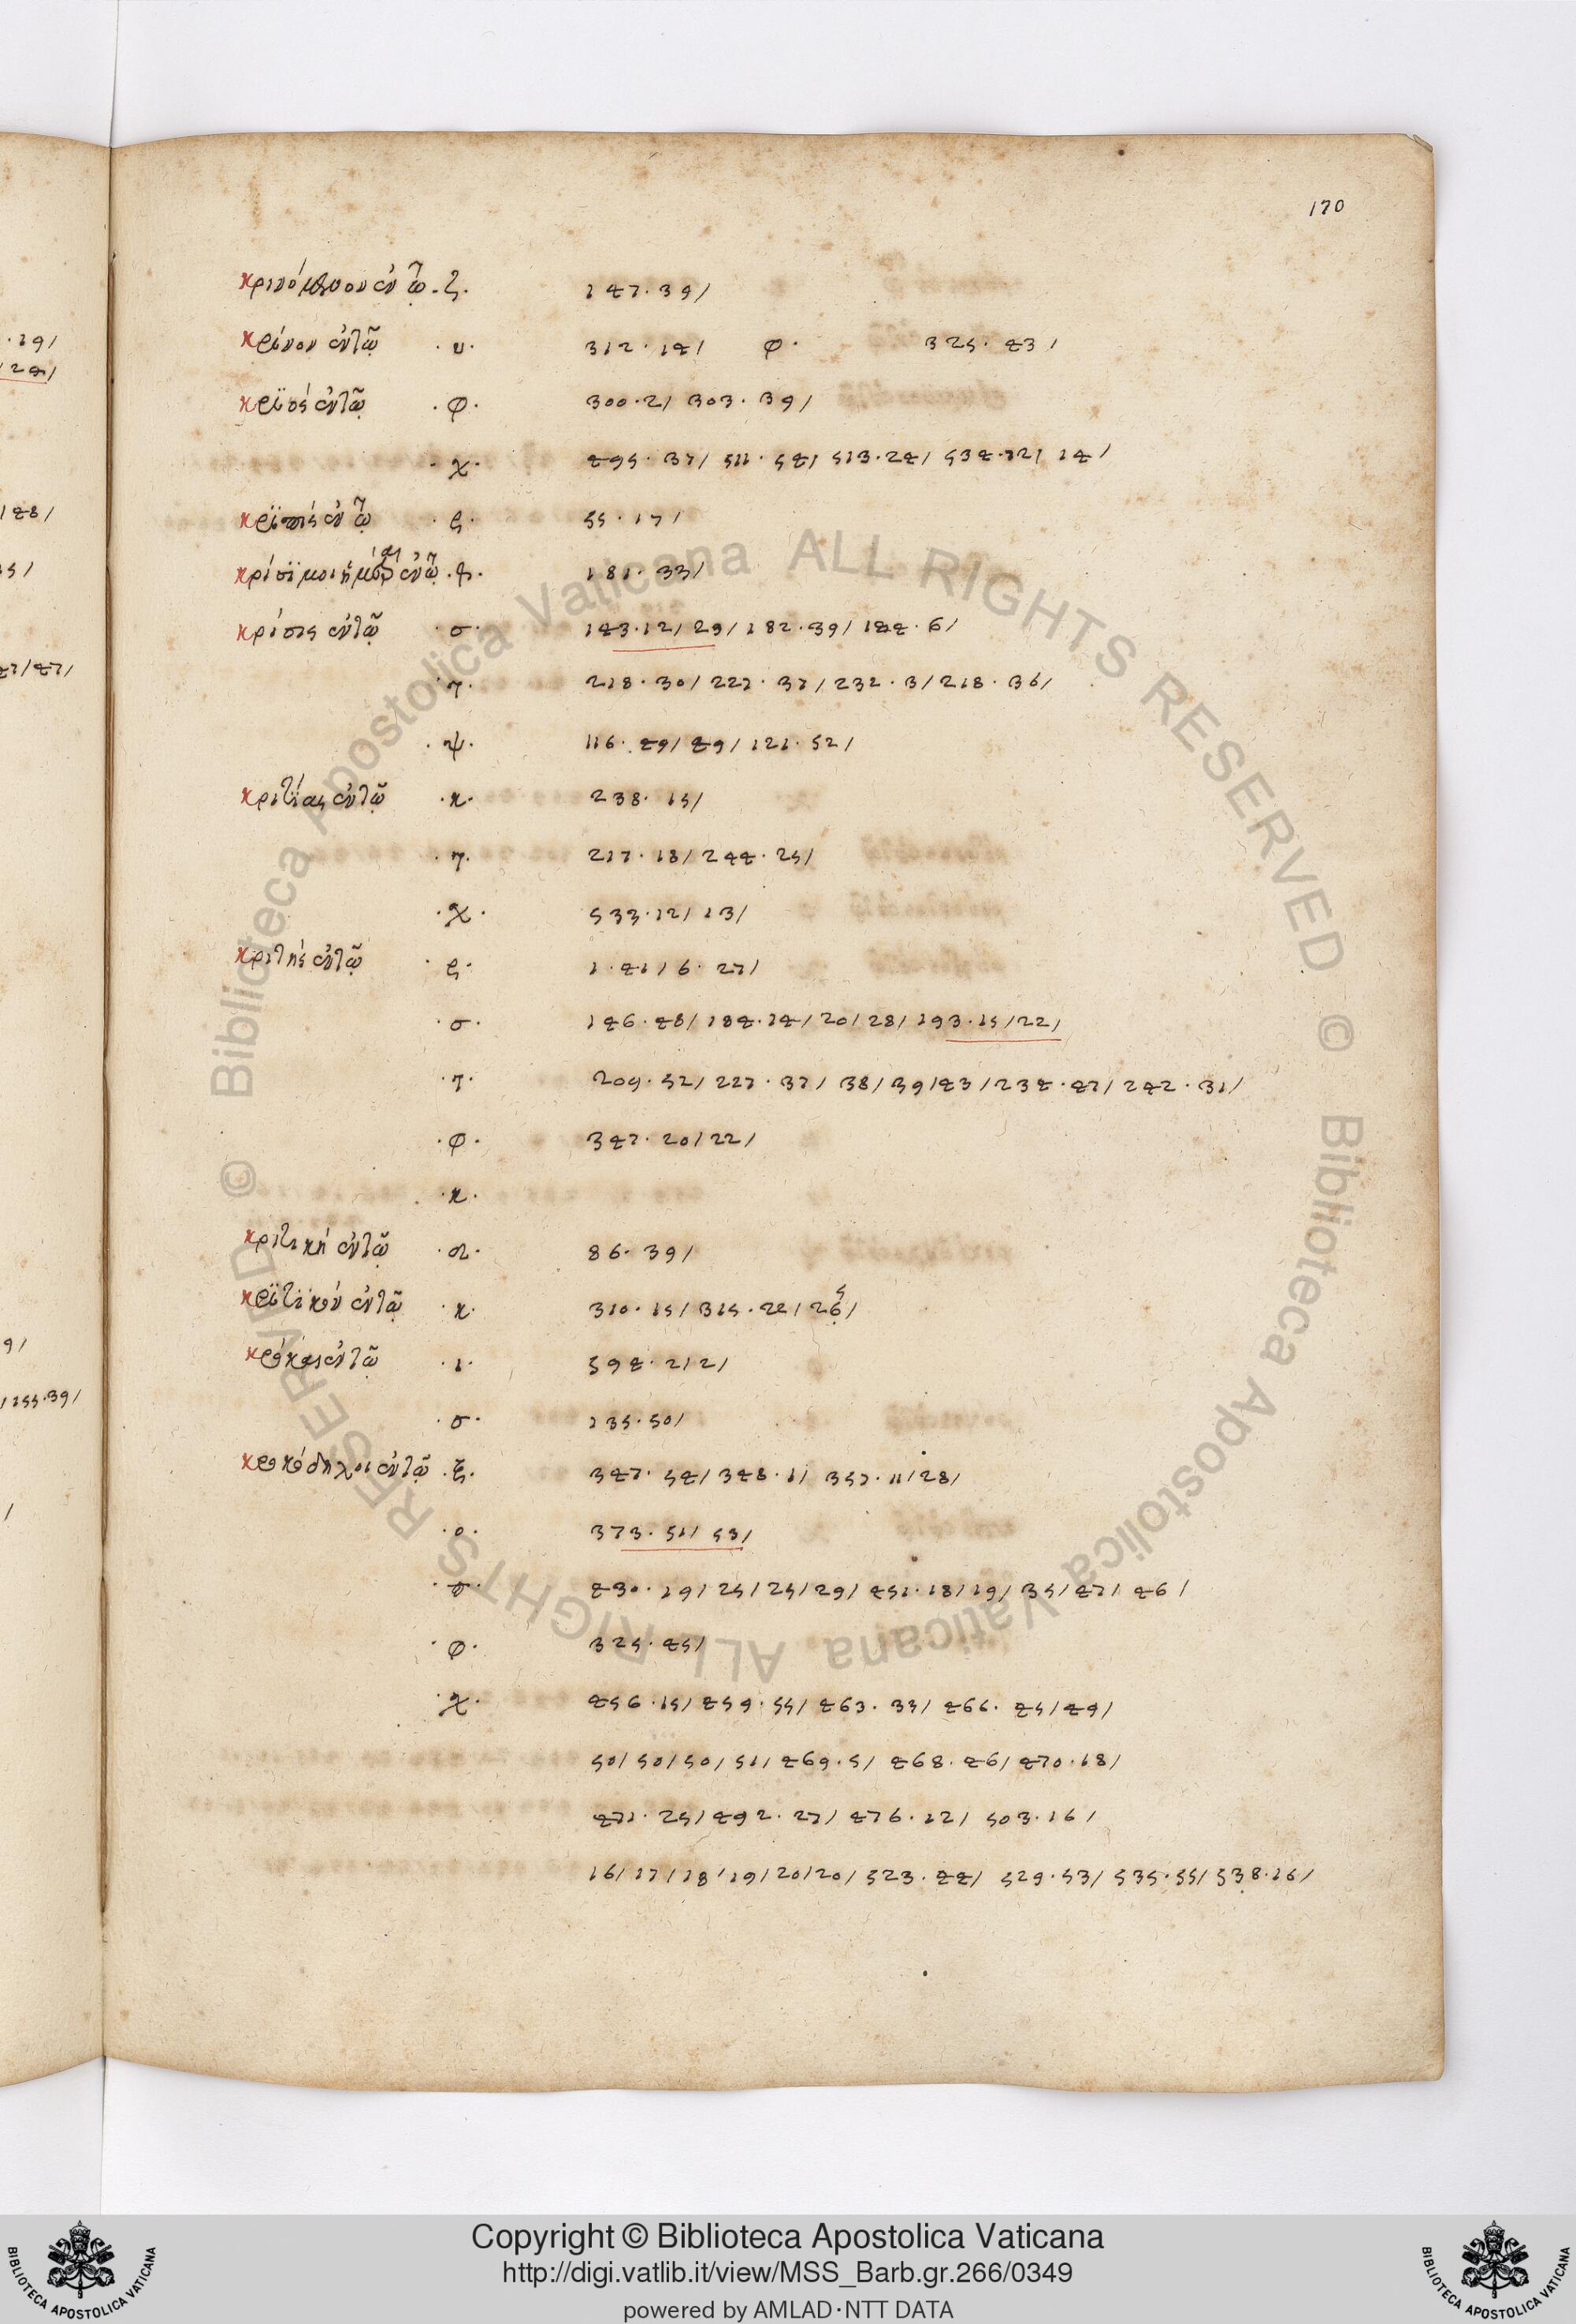 170
κρινόμενον ἐν τῷ · ζ · 147 · 39/
κρίνον ἐν τῷ · υ · 312 · 14/ φ · 325 · 43/
κριός ἐν τῷ · φ · 300 · 2/ 303 · 39/
· χ · 495 · 37/ 511 · 54/ 513 · 24/ 534 · 12/ 14/
ἐν τῷ · ϛ · 55 · 17/
κρίσϊμοι ἡμέραι ἐν τῷ 181 · 33/
κρίσις ἐν τῷ · σ · 143 · 12/ 29/ 182 · 39/ 144 · 6/
· τ · 218 · 30/ 227 · 37/ 232 · 3/ 218 · 36/
· ψ · 116 · 49/ 49/ 121 · 52/
κριτίας ἐν τῷ · κ · 238 · 15/
· τ · 217 · 18/ 244 · 25/
· χ · 533 · 12/ 13/
κριτής ἐν τῷ · ϛ · 1 · 41/ 6 · 27/
· σ · 146 · 48/ 184 · 14/ 20/ 28/ 193 · 15/ 22/
· τ · 209 · 52/ 227 · 37/ 38/ 39/ 43/ 234 · 47/ 242 · 31/
· φ · 347 · 20/ 22/
· κ ·
κριτική ἐν τῷ 86 · 39/
κριτϊκόν ἐν τῷ · κ · 310 · 15/ 315 · 22/ 26/
ἐν τῷ · ι · 594 · 2/ 2/
· σ · 135 · 50/
κροκόδηλοι ἐν τῷ · ξ · 347 · 54/ 348 · 1/ 357 · 11/ 28/
· ο · 373 · 51/ 53/
· σ · 430 · 19/ 25/ 25/ 29/ 451 · 18/ 19/ 35/ 47/ 46/
· φ · 325 · 45/
· χ · 456 · 15/ 459 · 55/ 463 · 33/ 466 · 45/ 49/
50/ 50/ 50/ 51/ 469 · 5/ 468 · 46/ 470 · 18/
471 · 25/ 492 · 27/ 476 · 12/ 503 · 16/
16/ 17/ 18/ 19/ 20/ 20/ 523 · 44/ 529 · 53/ 535 · 55/ 538 · 16/
© Biblioteca Apostolica Vaticana ALL RIGHTS RESERVED
© Biblioteca Apostolica Vaticana ALL RIGHTS RESERVED
Copyright © Biblioteca Apostolica Vaticana
http://digi.vatlib.it/view/MSS_Barb.gr.266/0349
powered by AMLAD·NTT DATA
BIBLIOTECA APOSTOLICA VATICANA
BIBLIOTECA APOSTOLICA VATICANA